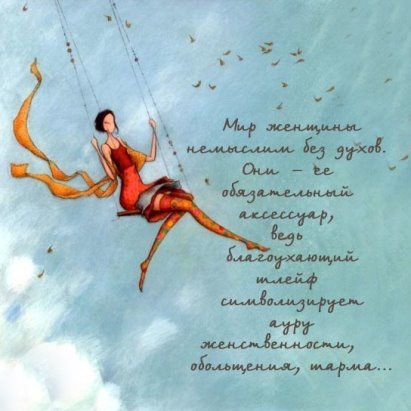 Мир женщины
немыслим без духов.
Они – ее
обязательный
аксессуар,
ведь
благоухающий
шлейф
символизирует
ауру
женственности,
обольщения, шарма...